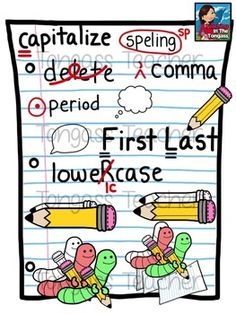 capitalize speling SP
In The
Tongass
delete comma
period
First Last
loweRcase
lc
Tongass Teacher